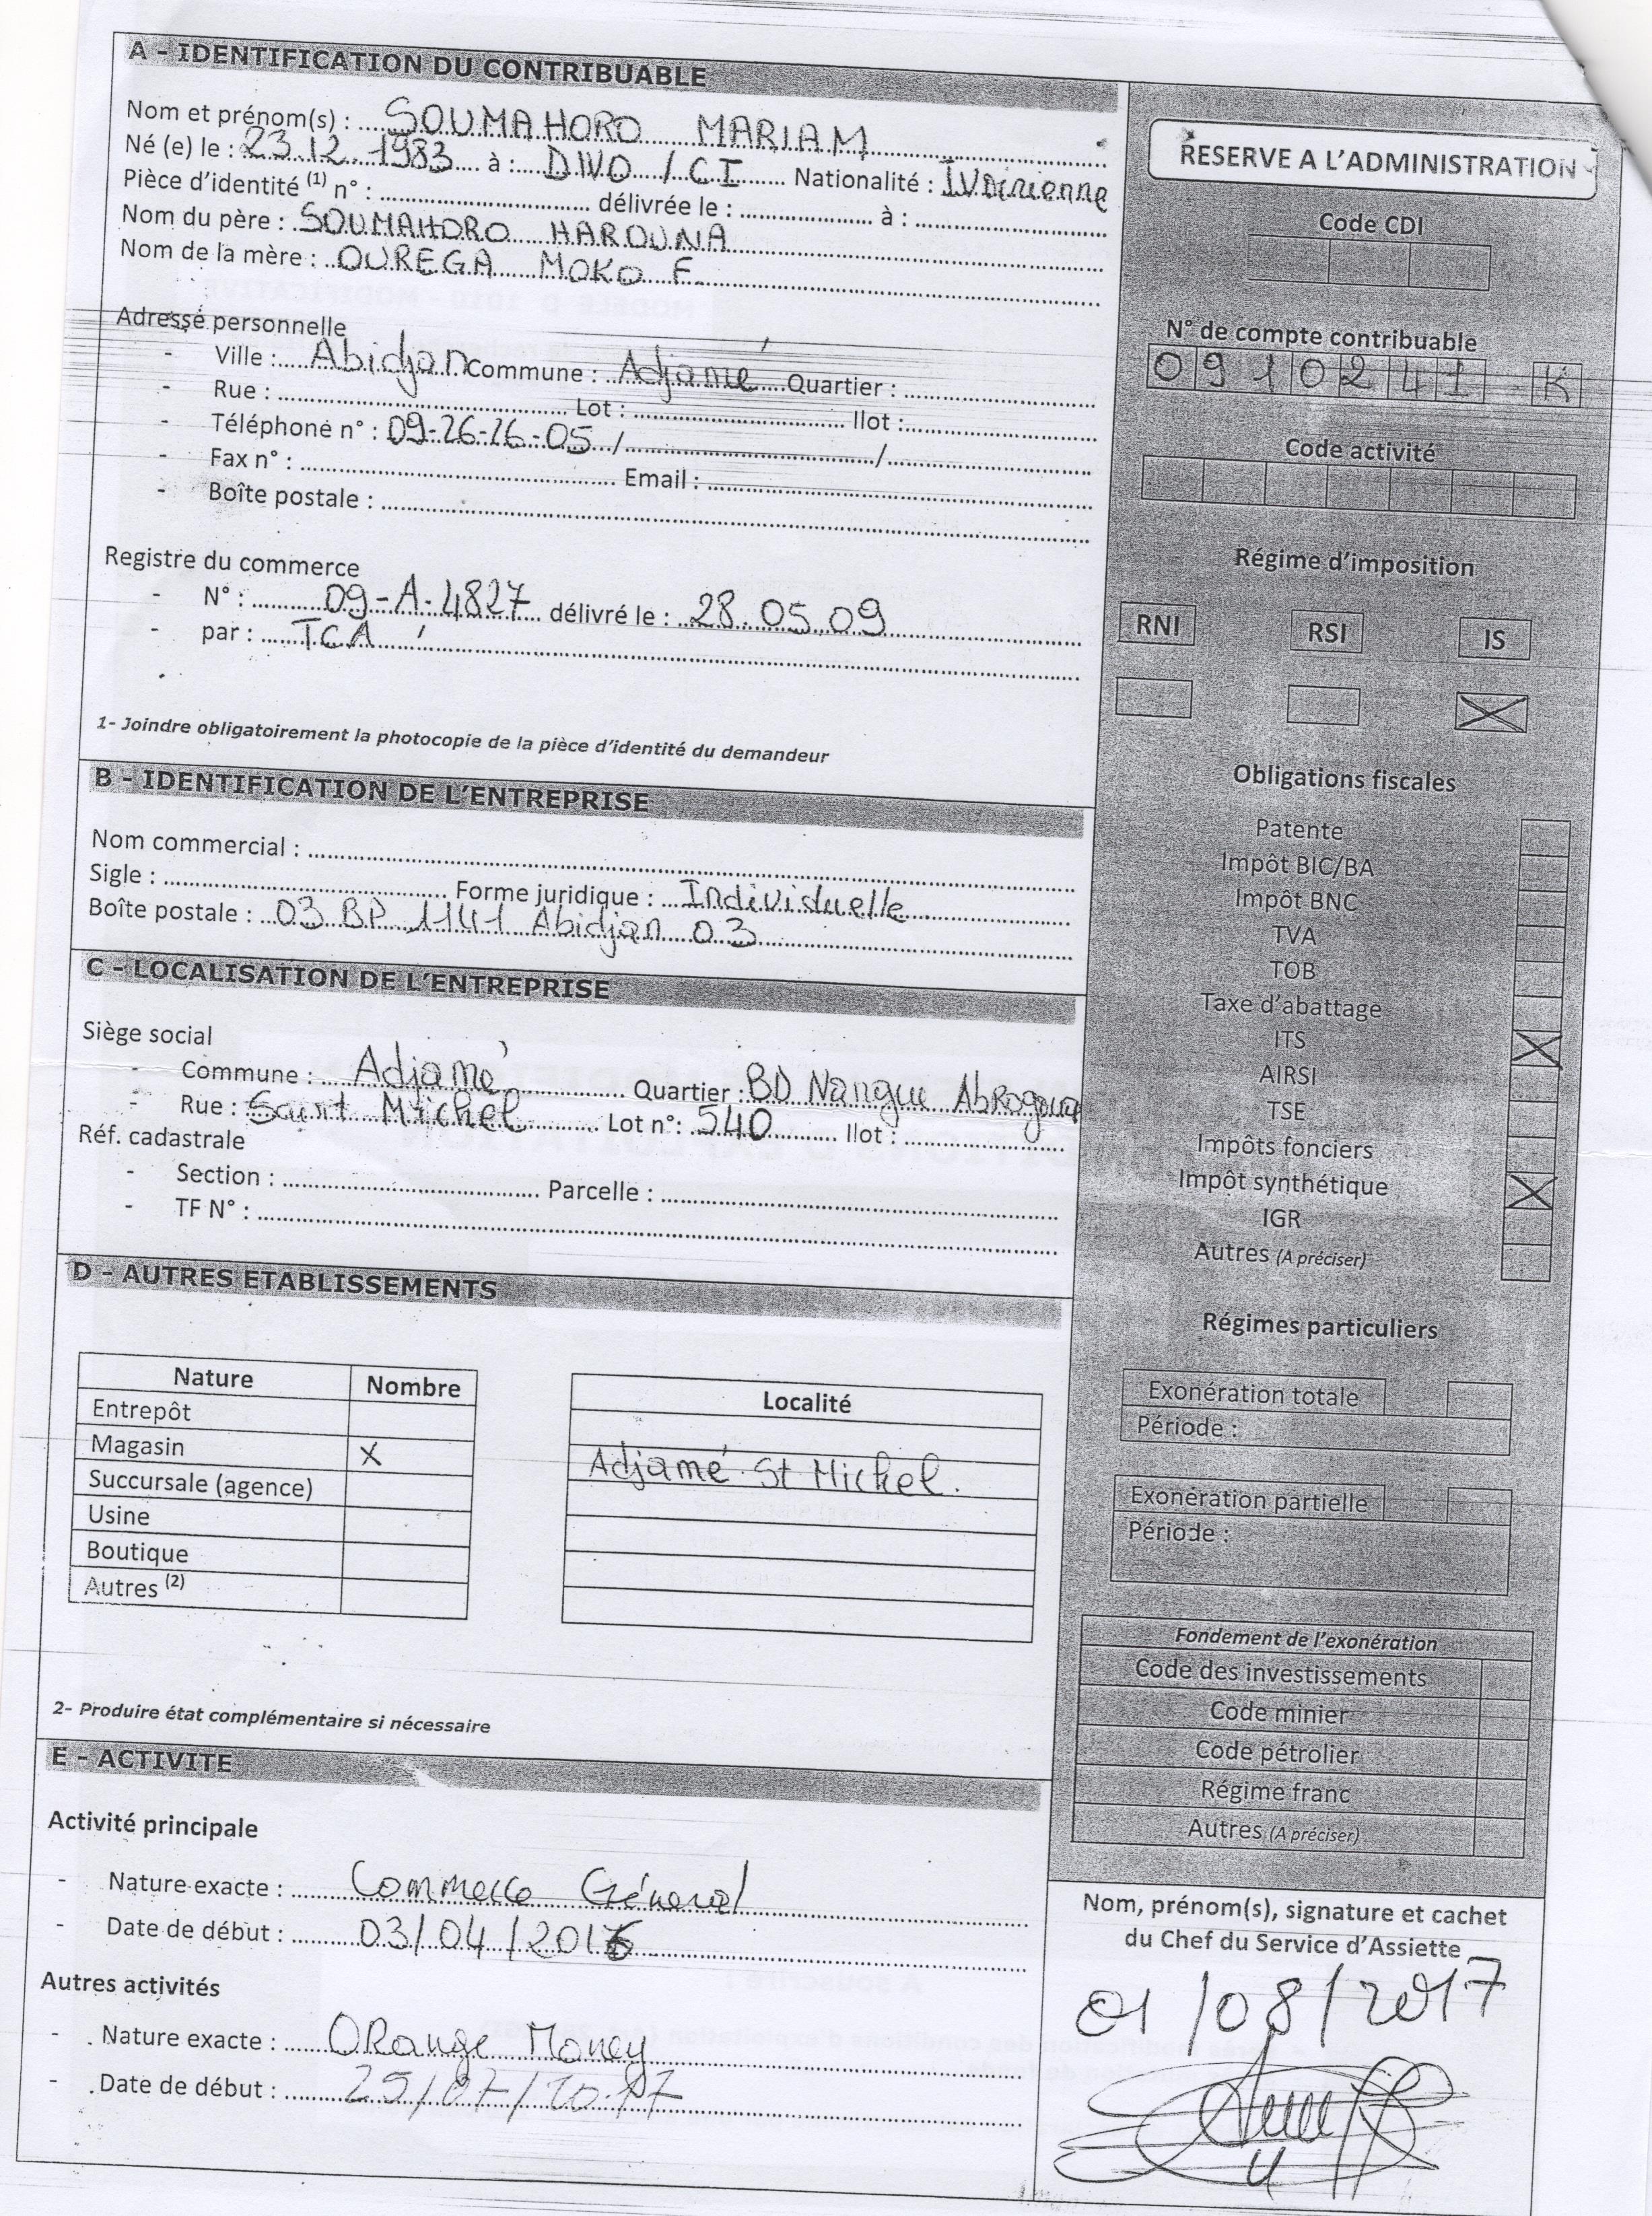 A - IDENTIFICATION DU CONTRIBUABLE
Nom et prénom(s) : SOUMAHORO MARIAM
Né (e) le : 23.12.1983 à : DIVO / CI Nationalité : Ivoirienne
Pièce d'identité (1) n° : délivrée le : à :
Nom du père : SOUMAHORO HAROUNA
Nom de la mère : OUREGA MOKO F.
Adresse personnelle
- Ville : Abidjan Commune : Adjamé Quartier :
- Rue : Lot : Ilot :
- Téléphone n° : 09-26-26-05 / /
- Fax n° : Email :
- Boîte postale :
Registre du commerce
- N° : 09-A-4827 délivré le : 28.05.09
- par : TCA
1- Joindre obligatoirement la photocopie de la pièce d'identité du demandeur
B - IDENTIFICATION DE L'ENTREPRISE
Nom commercial :
Sigle : Forme juridique : Individuelle
Boîte postale : 03 BP 1141 Abidjan 03
C - LOCALISATION DE L'ENTREPRISE
Siège social
- Commune : Adjamé Quartier : BD Nangue AbRogoua
- Rue : Saint Michel Lot n°: 540 Ilot :
Réf. cadastrale
- Section : Parcelle :
- TF N° :
D - AUTRES ETABLISSEMENTS
Nature Nombre Localité
Entrepôt
Magasin X Adjamé St Michel.
Succursale (agence)
Usine
Boutique
Autres (2)
2- Produire état complémentaire si nécessaire
E - ACTIVITE
Activité principale
- Nature exacte : Commerce Général
- Date de début : 03/04/2016
Autres activités
- Nature exacte : ORange Money
- Date de début : 25/07/2017
RESERVE A L'ADMINISTRATION
Code CDI
N° de compte contribuable
0910241 K
Code activité
Régime d'imposition
RNI RSI IS
X
Obligations fiscales
Patente
Impôt BIC/BA
Impôt BNC
TVA
TOB
Taxe d'abattage
ITS X
AIRSI
TSE
Impôts fonciers
Impôt synthétique X
IGR
Autres (A préciser)
Régimes particuliers
Exonération totale
Période :
Exonération partielle
Période :
Fondement de l'exonération
Code des investissements
Code minier
Code pétrolier
Régime franc
Autres (A préciser)
Nom, prénom(s), signature et cachet
du Chef du Service d'Assiette
01/08/2017